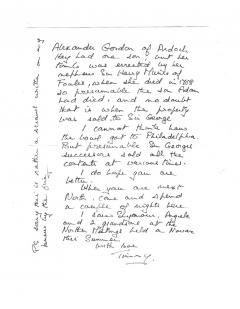 Alexander Gordon of Ardoch
They had one son, but her
tomb was erected by her
nephew Sir Harry Munro of
Foulis, when she died in
so presumable the son Adam
had died, and no doubt
that is when the property
was sold to Sir George
I cannot think how
the bowl got to Philadelphia.
But presumable Sir Georges
successors sold all the
contents at various times.
I do hope you are
better.
When you are next
North, come and spend
a couple of nights here
I saw Seymour, Angela
and 2 grandsons at the
Northern Meetings held a
this Summer.
with love
Timmy.
PS sorry this is rather a scrawl written on my
knees by the fire